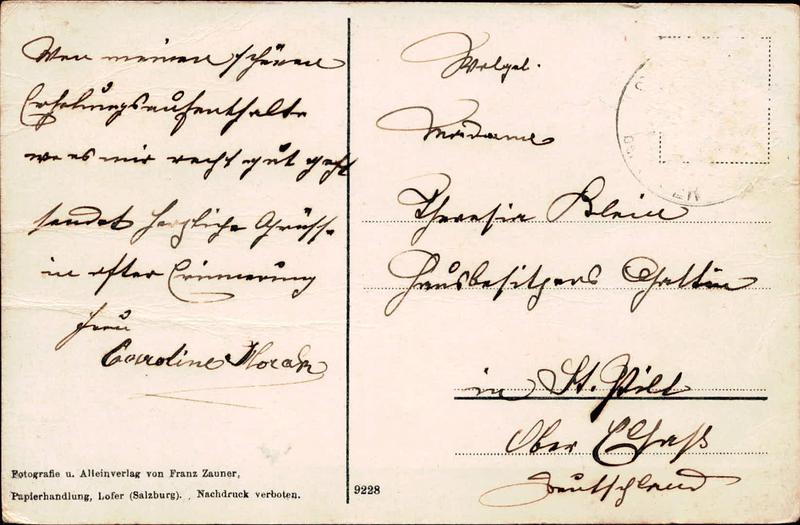 Von meinen schönen
Erholungsaufenthalte
wo es mir recht gut geht
sendet herzliche Grüsse
in ofter Erinnerung
Frau
Caroline
Wolgel.
Madame
Theresia Klein
Hausbesitzers Gattin
in St. Pilt
Ober Elsaß
Deutschland
Fotografie u. Alleinverlag von Franz Zauner,
Papierhandlung, Lofer (Salzburg). Nachdruck verboten.
9228